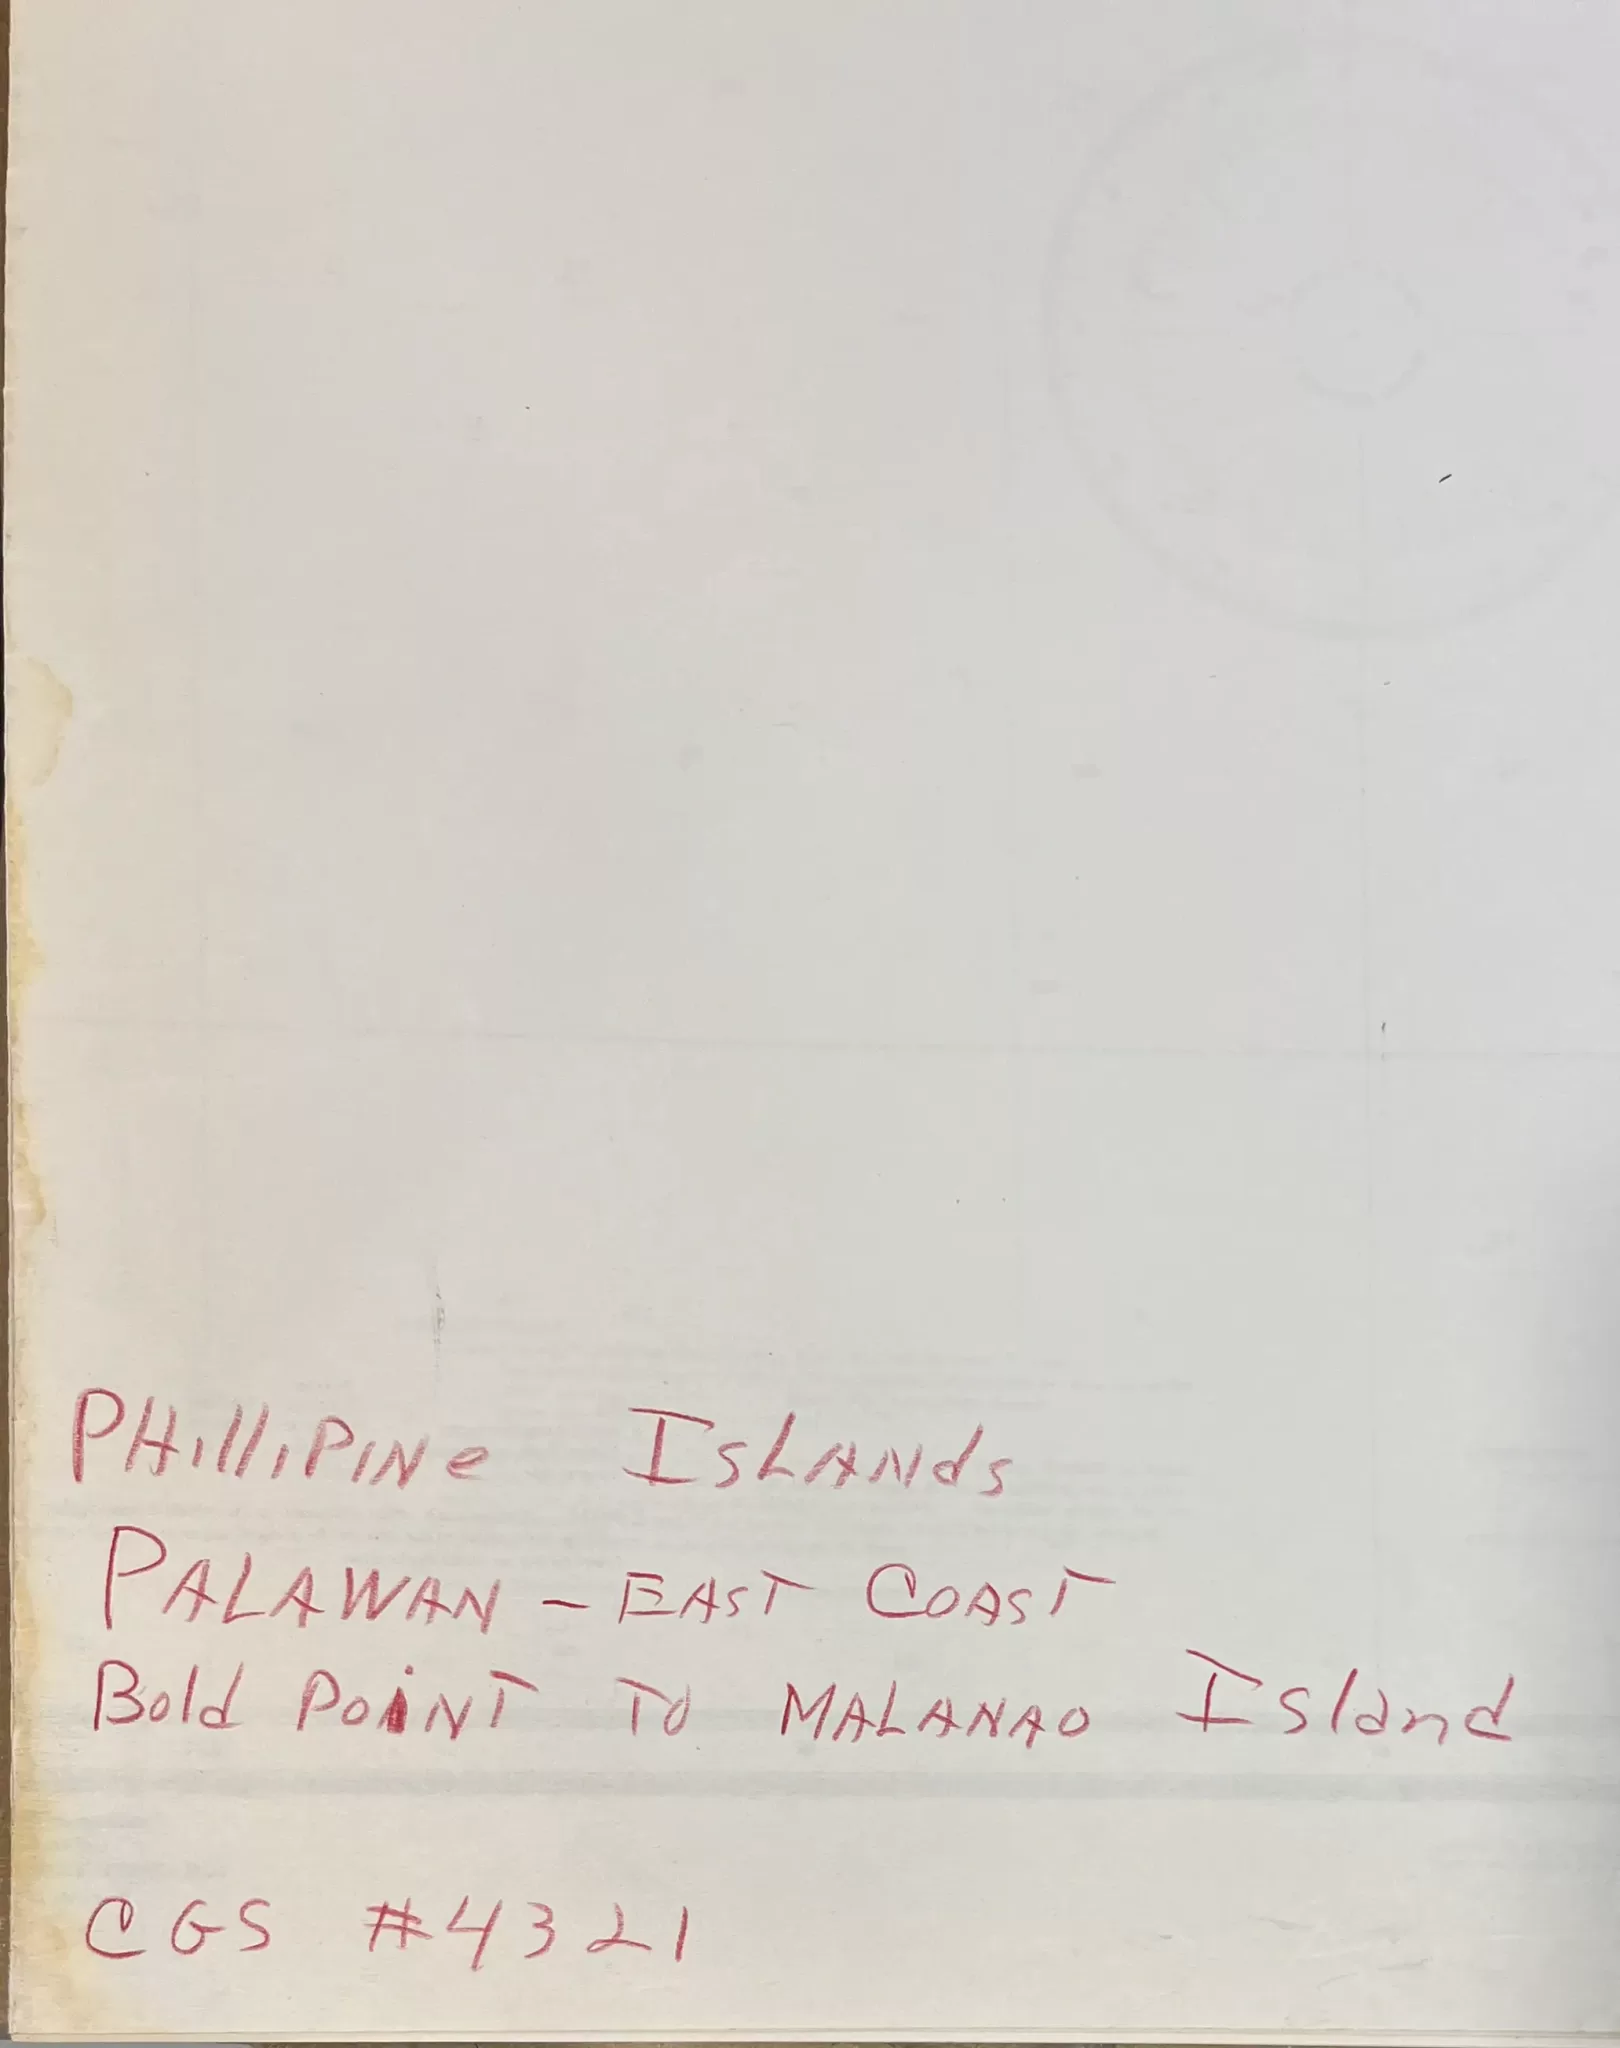 PHilliPiNe IsLANds
PALAWAN - EAST COAST
Bold PoiNT To MALANAO Island
CGS #4321